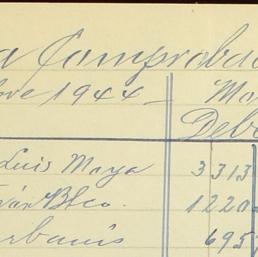 a Comproba
bre 1944 - Mo
Deb
Luis Moya 3 313
Iván Blco. 1220
urbanis 695